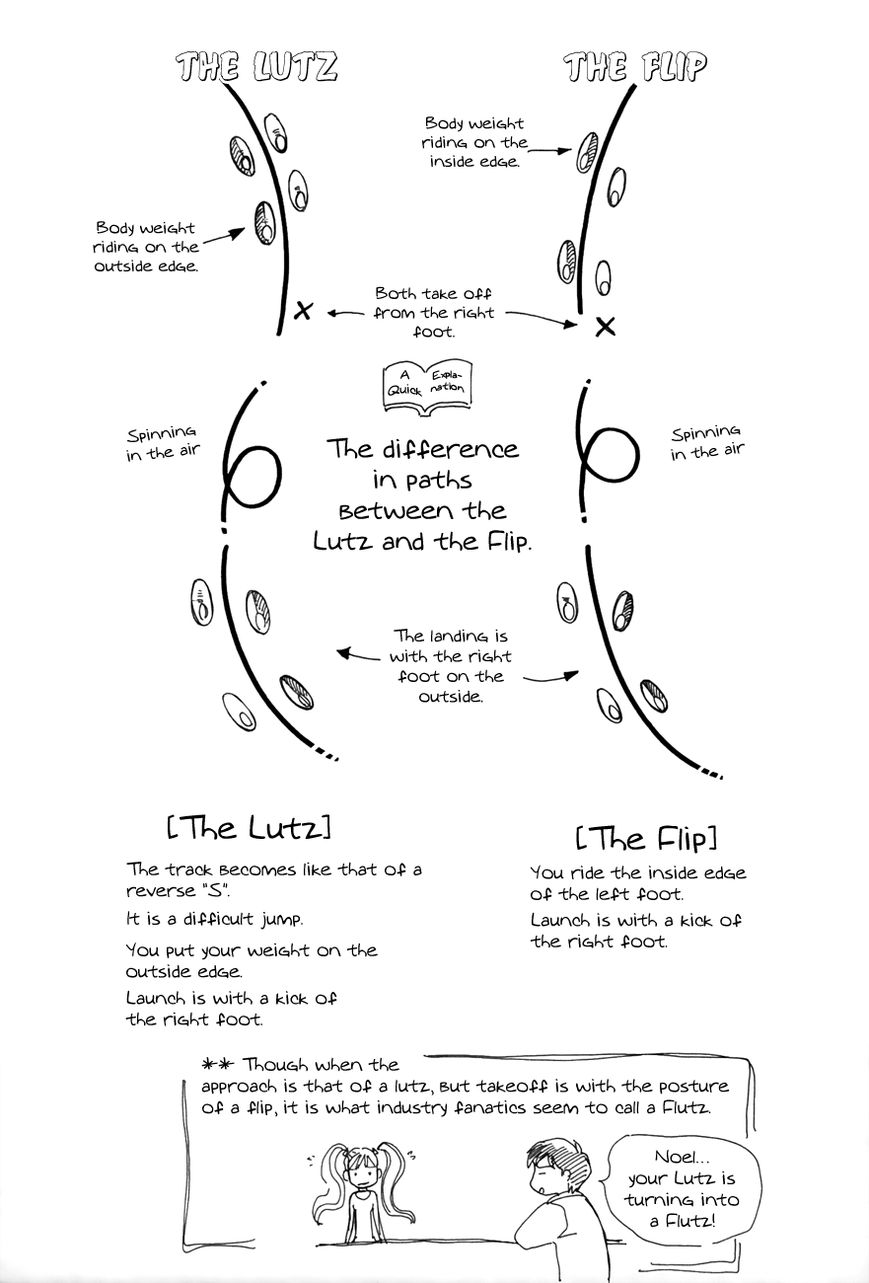 THE LUTZ
THE FLIP
Body weight
riding on the
inside edge.
Body weight
riding on the
outside edge.
Both take off
from the right
foot.
A
Quick
Expla-
nation
Spinning
in the air
The difference
in paths
between the
Lutz and the Flip.
Spinning
in the air
The landing is
with the right
foot on the
outside.
[The Lutz]
The track becomes like that of a
reverse "S".
It is a difficult jump.
You put your weight on the
outside edge.
Launch is with a kick of
the right foot.
[The Flip]
You ride the inside edge
of the left foot.
Launch is with a kick of
the right foot.
** Though when the
approach is that of a lutz, but takeoff is with the posture
of a flip, it is what industry fanatics seem to call a Flutz.
Noel...
your Lutz is
turning into
a Flutz!